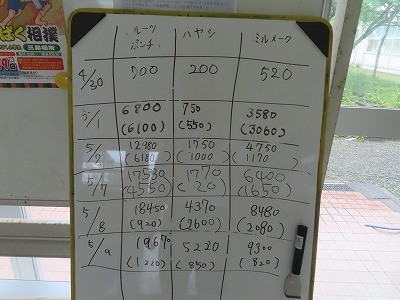 ばく相撲
三島場所
フルーツポンチ ハヤシ ミルメーク
4/30 700 200 520
5/1 6800 750 3580
(6100) (550) (3060)
5/2 12980 1750 4750
(6180) (1000) (1170)
5/7 17530 1770 6400
(4550) (20) (1650)
5/8 18450 4370 8480
(920) (2600) (2080)
5/9 19670 5220 9300
(1220) (850) (820)